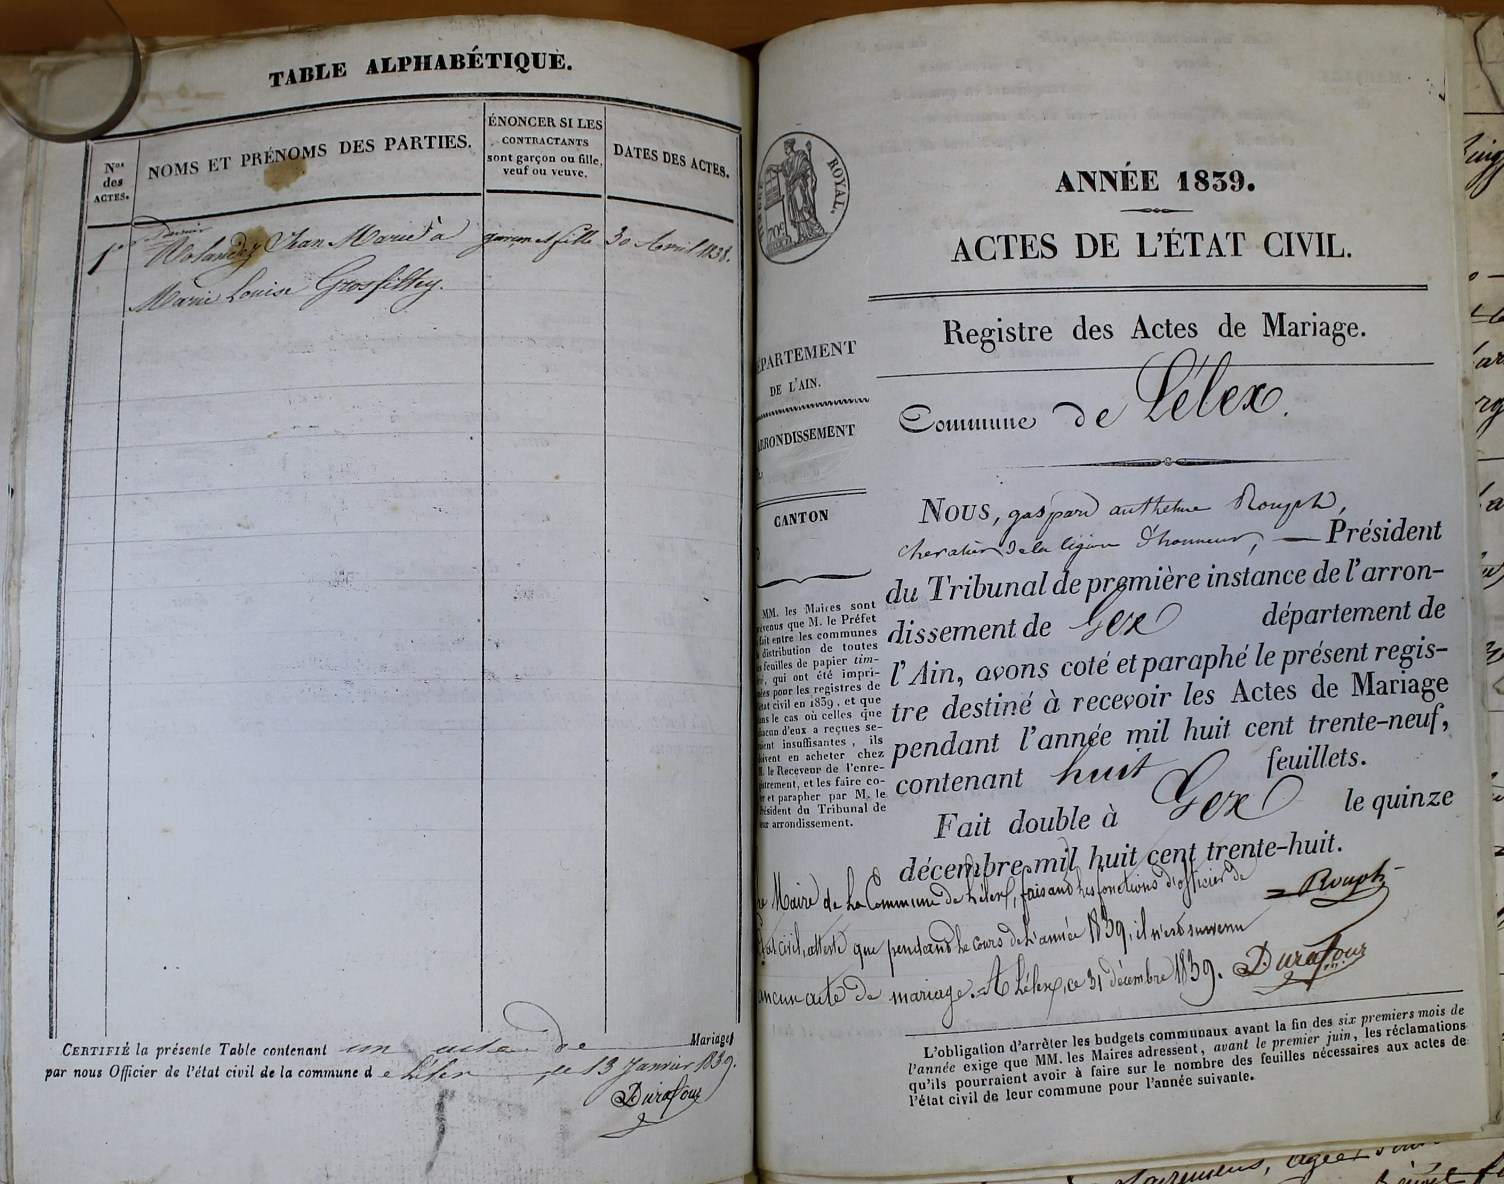 TABLE ALPHABÉTIQUE.
Nos des ACTES.
NOMS ET PRÉNOMS DES PARTIES.
ÉNONCER SI LES CONTRACTANTS
sont garçon ou fille,
veuf ou veuve.
DATES DES ACTES.
1er Jean Marie à garçon et fille 30 Avril 1838.
Marie Louise Grosfilley.
CERTIFIÉ la présente Table contenant un acte de Mariage
par nous Officier de l'état civil de la commune de Lélex, le 13 Janvier 1839.
Durafour
ROYAL.
ANNÉE 1839.
ACTES DE L'ÉTAT CIVIL.
Registre des Actes de Mariage.
Commune de Lélex.
DÉPARTEMENT
DE L'AIN.
ARRONDISSEMENT
CANTON
MM. les Maires sont
prévenus que M. le Préfet
fait entre les communes
la distribution de toutes
les feuilles de papier tim-
bré, qui ont été impri-
mées pour les registres de
l'état civil en 1839, et que
dans le cas où celles que
chacun d'eux a reçues se-
raient insuffisantes, ils
doivent en acheter chez
M. le Receveur de l'enre-
gistrement, et les faire co-
ter et parapher par M. le
Président du Tribunal de
leur arrondissement.
NOUS, gaspard anthelme Rouph,
chevalier de la légion d'honneur, — Président
du Tribunal de première instance de l'arron-
dissement de Gex département de
l'Ain, avons coté et paraphé le présent regis-
tre destiné à recevoir les Actes de Mariage
pendant l'année mil huit cent trente-neuf,
contenant huit feuillets.
Fait double à Gex le quinze
décembre mil huit cent trente-huit.
Rouph
le Maire de la Commune de Lélex, faisant les fonctions d'officier de
l'état civil, atteste que pendant le cours de l'année 1839, il n'est survenu
aucun acte de mariage. = A Lélex, ce 31 décembre 1839. Durafour
L'obligation d'arrêter les budgets communaux avant la fin des six premiers mois de
l'année exige que MM. les Maires adressent, avant le premier juin, les réclamations
qu'ils pourraient avoir à faire sur le nombre des feuilles nécessaires aux actes de
l'état civil de leur commune pour l'année suivante.